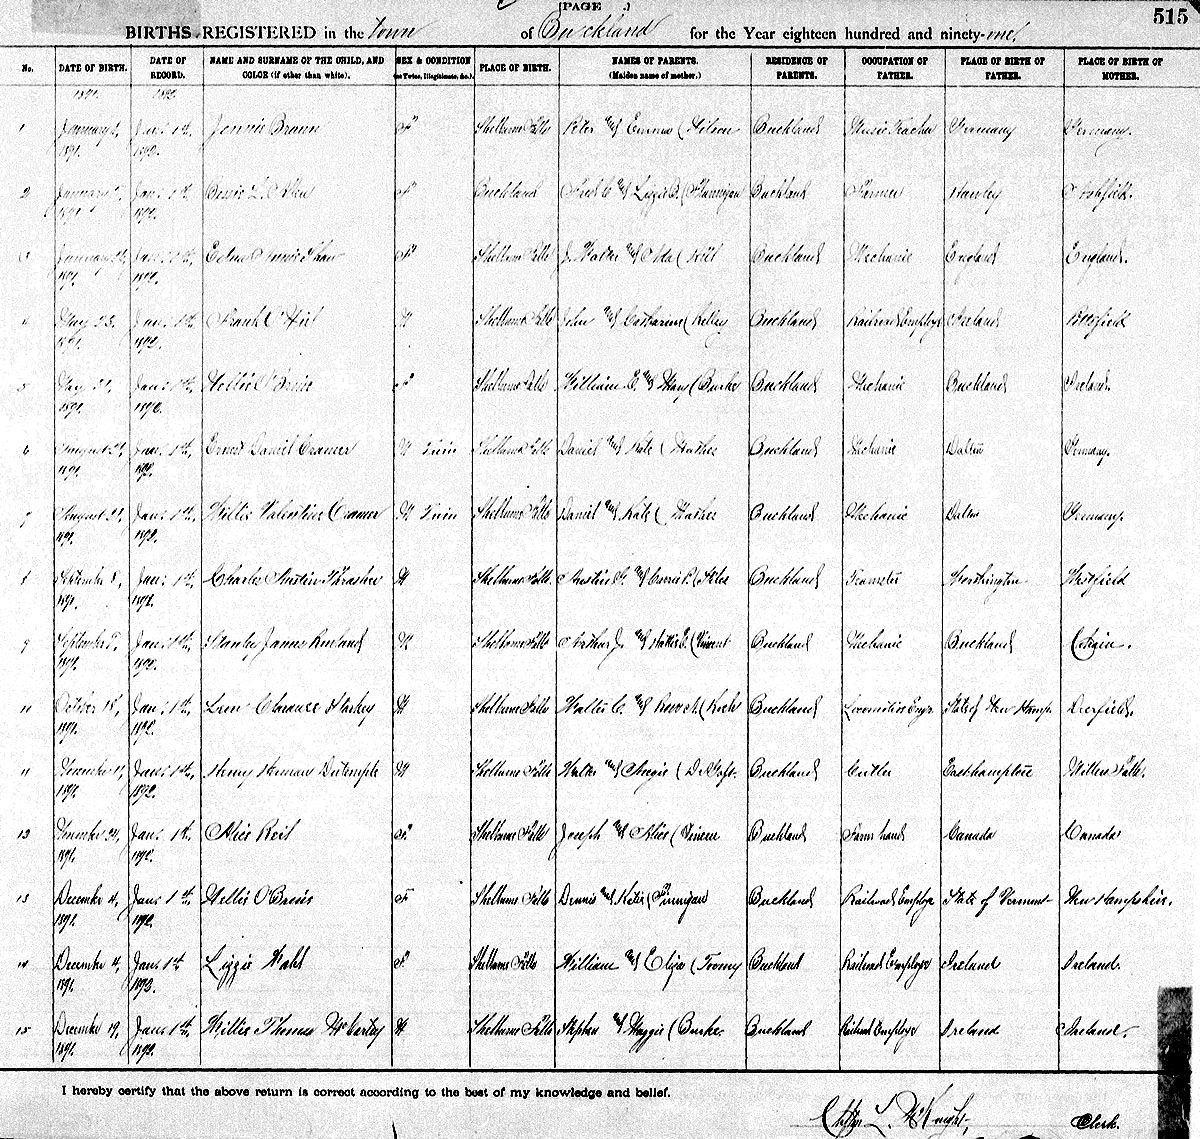 [PAGE .]
515
BIRTHS REGISTERED in the town of Buckland for the Year eighteen hundred and ninety-one.
No. DATE OF BIRTH. DATE OF RECORD. NAME AND SURNAME OF THE CHILD, AND COLOR (if other than white). SEX & CONDITION (as Twins, Illegitimate, &c.) PLACE OF BIRTH. NAMES OF PARENTS. (Maiden name of mother.) RESIDENCE OF PARENTS. OCCUPATION OF FATHER. PLACE OF BIRTH OF FATHER. PLACE OF BIRTH OF MOTHER.
1891. 1892.
1 January Jan. 1st, Jennie Braun F Shelburne Falls Peter and Emma ( Buckland Music Teacher Germany Germany.
1891. 1892.
2 January Jan. 1st, L. F Buckland Fred C. and Lizzie B. (Flannigan Buckland Farmer Hawley Ashfield.
1891. 1892.
3 January Jan. 1st, Edna Annie Shaw F Shelburne Falls J. Walter and Ida ( Buckland Mechanic England England.
1891. 1892.
4 May 23, Jan. 1st, Frank O' M Shelburne Falls John and Catharine (Kelley Buckland Railroad Employe Ireland
1891. 1892.
5 May Jan. 1st, Nellie O'Brien F Shelburne Falls William E. and Mary (Burke Buckland Mechanic Buckland Ireland.
1891. 1892.
6 August Jan. 1st, Ernest Daniel Cranmer M Twin Shelburne Falls Daniel and Kate ( Buckland Mechanic Dalton Germany.
1891. 1892.
7 August Jan. 1st, Willie Valentine Cranmer M Twin Shelburne Falls Daniel and Kate ( Buckland Mechanic Dalton Germany.
1891. 1892.
8 September 8, Jan. 1st, Charles Austin Thrasher M Shelburne Falls Austin G. and Carrie P. ( Buckland Teamster Worthington Westfield
1891. 1892.
9 September Jan. 1st, Stanley James M Shelburne Falls Arthur J. and Hattie E. (Vincent Buckland Mechanic Buckland
1891. 1892.
October 18, Jan. 1st, Leon Clarance Starkey M Shelburne Falls Walter C. and A. ( Buckland Locomotive Engr. State of New Hamp. Deerfield.
1891. 1892.
11 November Jan. 1st, Henry Herman M Shelburne Falls Walter and Angie ( Buckland Cutler Easthampton Millers Falls.
1891. 1892.
12 November Jan. 1st, Alice F Shelburne Falls Joseph and Alice ( Buckland Farm hand Canada Canada
1891. 1892.
13 December 4, Jan. 1st, Nellie O'Brien F Shelburne Falls Dennis and Katie (Finnigan Buckland Railroad Employe State of Vermont New Hampshire.
1891. 1892.
14 December 4, Jan. 1st Lizzie Wahl F Shelburne Falls William and Eliza (Toomy Buckland Railroad Employe Ireland Ireland.
1891. 1892.
15 December 19, Jan. 1st, Willie Thomas McCarty M Shelburne Falls Stephen and Maggie (Burke. Buckland Railroad Employe Ireland Ireland.
1891. 1892.
I hereby certify that the above return is correct according to the best of my knowledge and belief.
L. McKnight, Clerk.